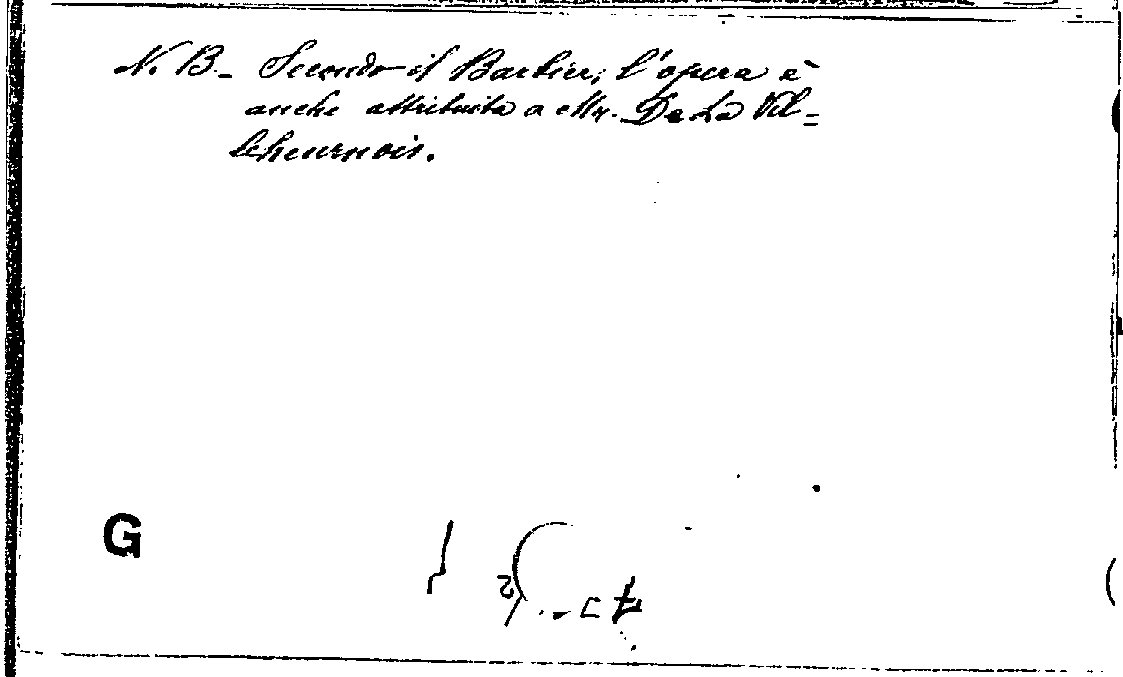 N. B. - Secondo il Barbier, l'opera è
anche attribuita a Mr. De La Vil=
leheurnois.
G